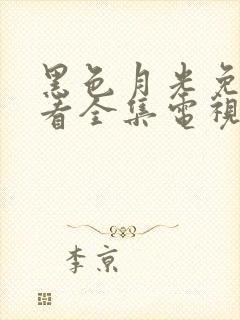 黑色月光免
看全集電視
李京